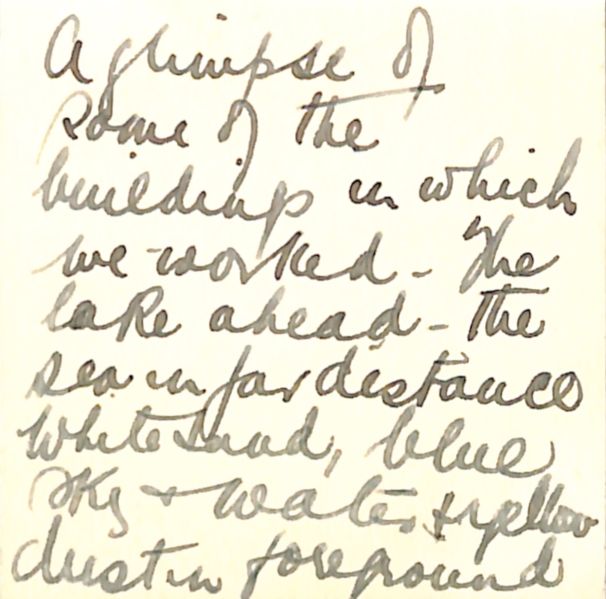 A glimpse of
some of the
buildings in which
we worked - The
lake ahead - the
sea in far distance
White sand, blue
sky + water + yellow
dust in foreground